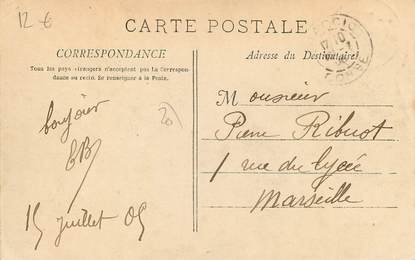 12 €
CARTE POSTALE
CORRESPONDANCE
Tous les pays étrangers n'acceptent pas la Correspon-
dance au recto. Se renseigner à la Poste.
Adresse du Destinataire
bonjour
EB
15 juillet 05
20
Monsieur
Pierre Ribuot
1 rue du lycée
Marseille